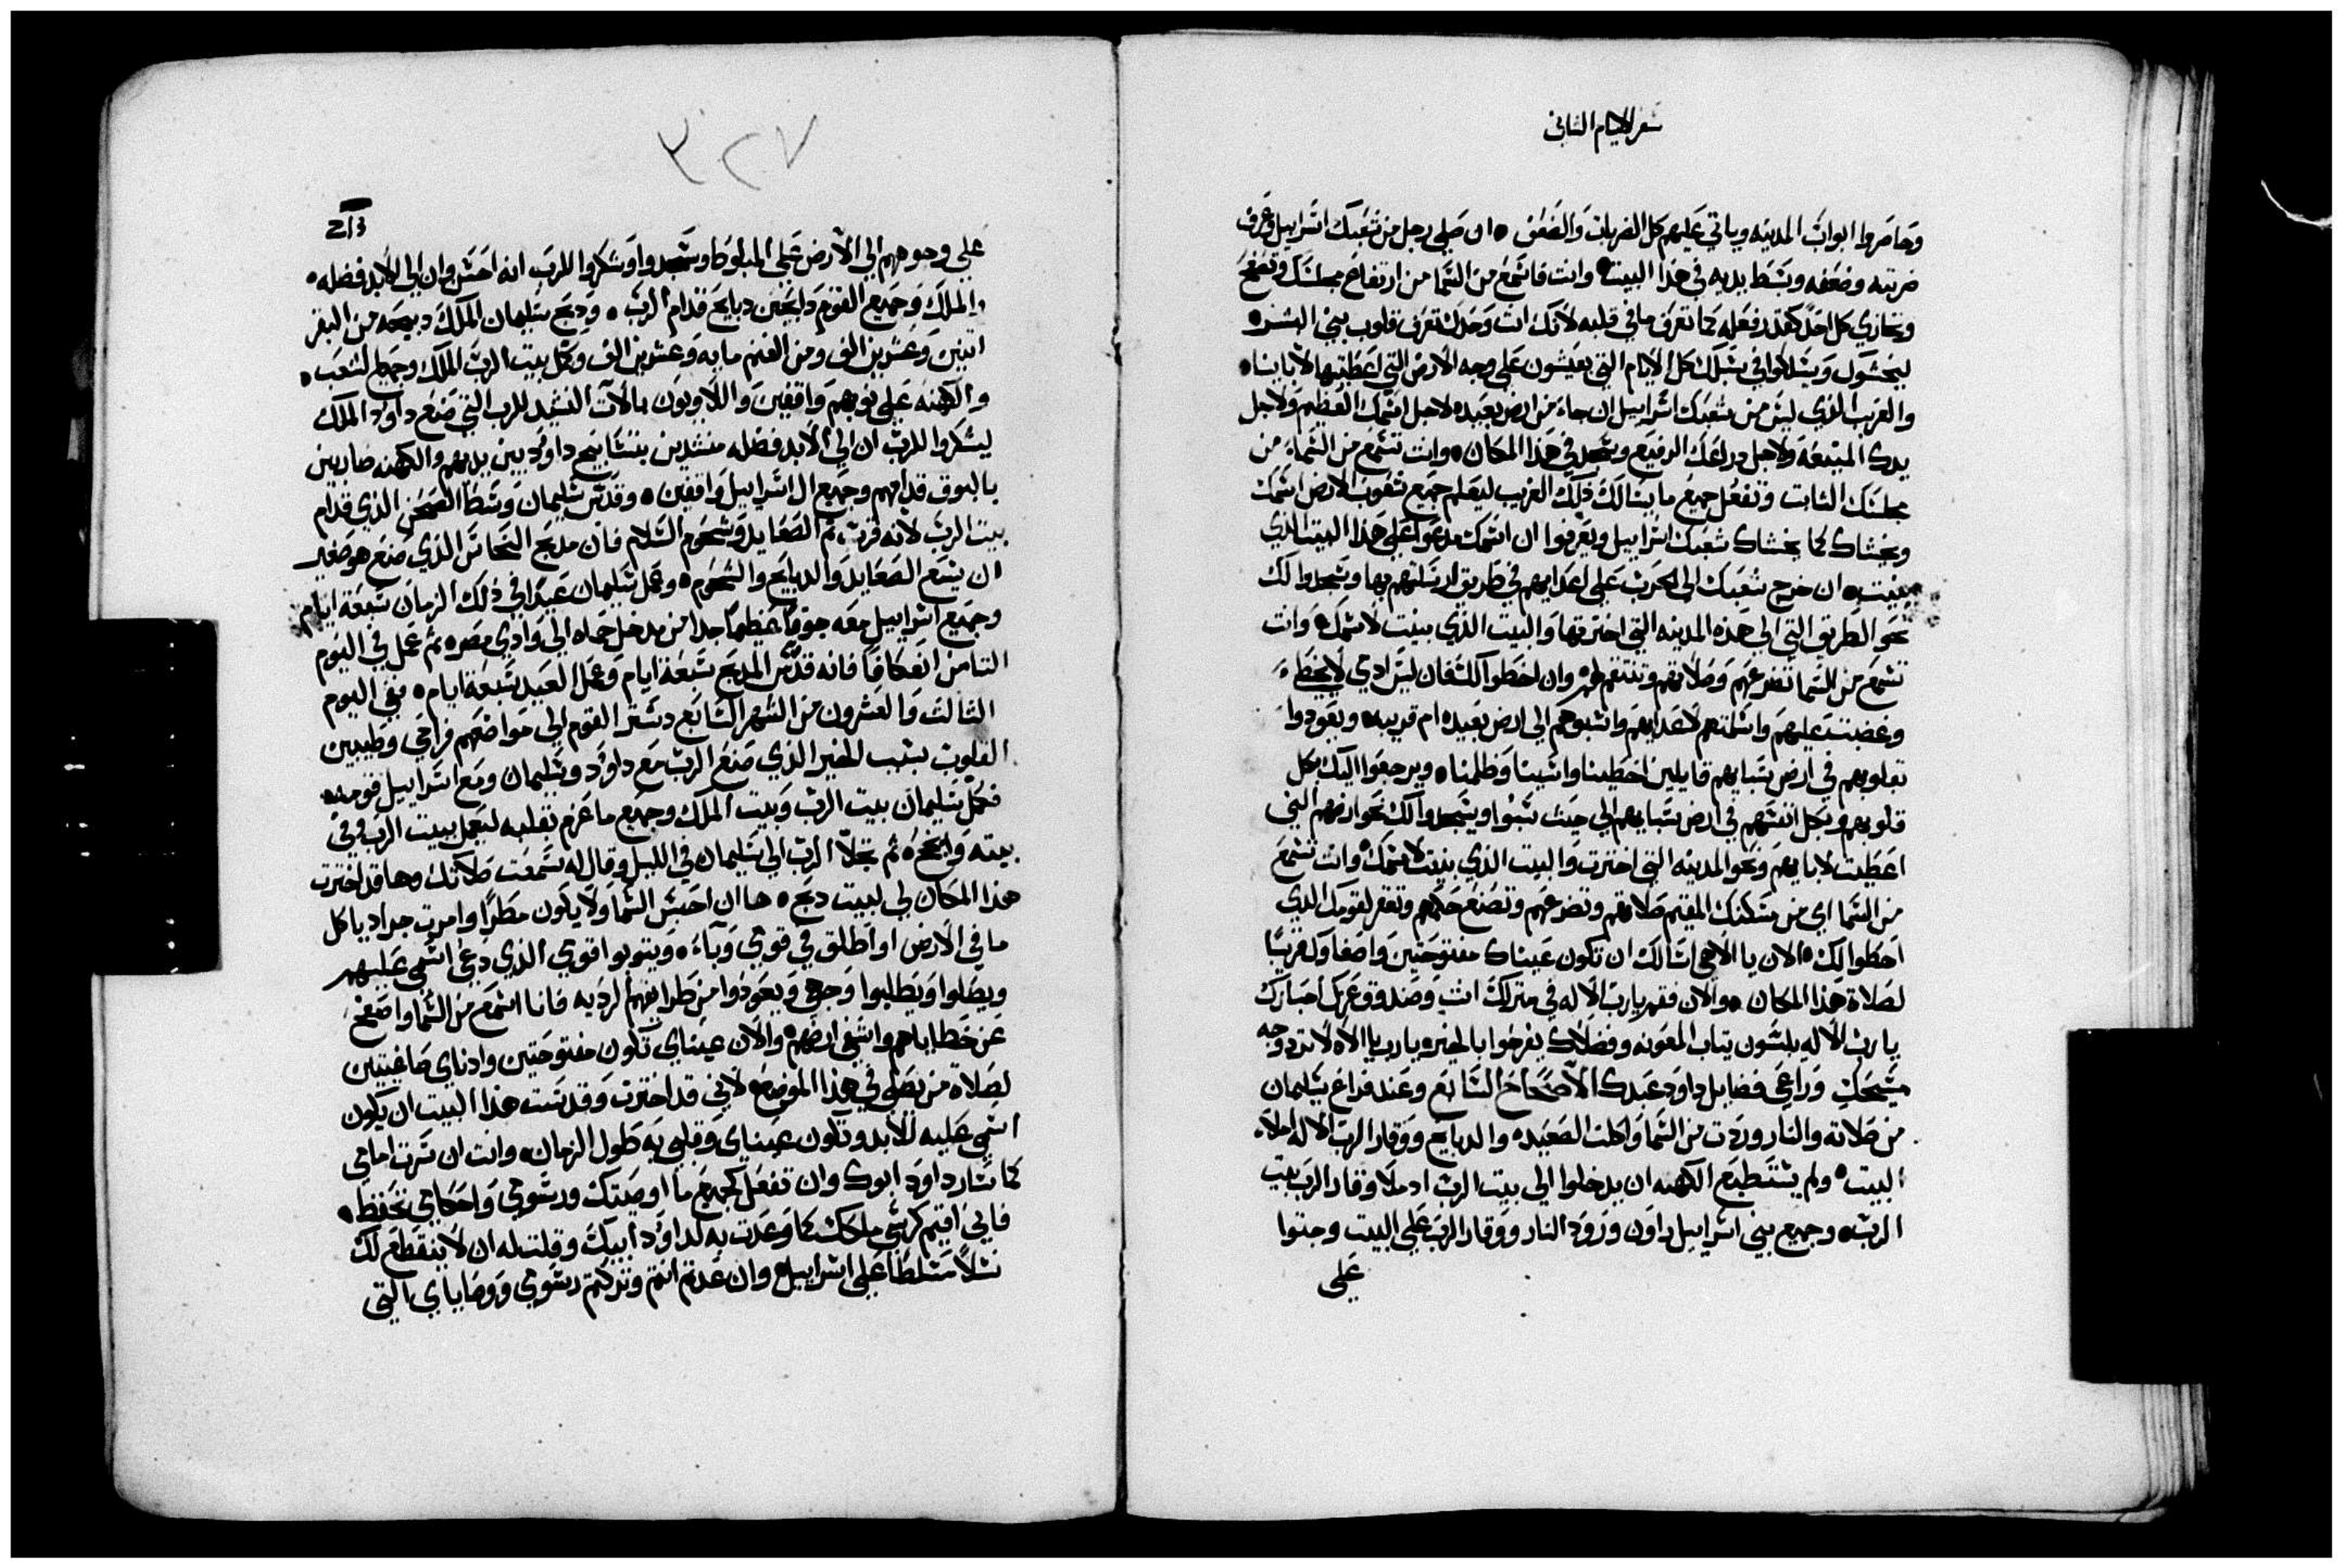 سفر الايام الثانى
وحاصروا ابواب المدينه وياتي عليهم كل الضربات والضعف ٠ ان صلى رجل من شعبك اسراييل وعرف
ضربته وضعفه وبسط يديه في هذا البيت ٠ وانت فاسمع من السما من ارتفاع مجلسك وتصفح
وتجازي كل احد كقدر فعله كما تعرف ما في قلبه لانك انت وحدك تعرف قلوب بني البشر ٠
ليخشوك ويسلكوا في سبلك كل الايام التي يعيشون على وجه الارض التي اعطيتها لابائنا ٠
والغريب الذي ليس من شعبك اسراييل ان جاء من ارض بعيده لاجل اسمك العظيم ولاجل
يدك المنيعة ولاجل دراعك الرفيع وسجد في هذا المكان ٠ وانت تسمع من السماء من
مجلسك الثابت وتفعل جميع ما يسالك ذلك الغريب ليعلم جميع شعوب الارض اسمك
ويخشاك كما يخشاك شعبك اسراييل ويعرفوا ان اسمك مدعوا على هذا البيت الذي
بنيت ٠ ان خرج شعبك الى الحرب على اعدايهم في طريق ارسلتهم بها وسجدوا لك
نحو الطريق التي الى هذه المدينه التي اخترتها والبيت الذي بنيت لاسمك ٠ وانت
تسمع من السما تضرعهم وصلاتهم وتنتقم لهم وان اخطوا لك فان ليس ادمي لا يخطء
وغضبت عليهم واسلمتهم لاعدايهم واسبوهم الى ارض بعيده ام قريبه ويعودوا
بقلوبهم في ارض سبايهم قايلين اخطينا واسينا وظلمنا ٠ ويرجعوا اليك بكل
قلوبهم وبكل انفسهم في ارض سبايهم الى حيث سبوا ويسجدوا لك نحو ارضهم التي
اعطيت لابايهم ونحو المدينه التي اخترت والبيت الذي بنيت لاسمك ٠ وانت تسمع
من السما اي من مسكنك المقيم صلاتهم وتضرعهم وتصنع حكمهم وتغفر لقومك الذي
اخطوا لك ٠ الان يا الاهي اسالك ان تكون عيناك مفتوحتين واصغا وك قريبًا
لصلاة هذا المكان ٠ والان فقم يا رب الاله في منزلك انت وصندوق عزك احبارك
يا رب الاله يلبسون تياب المعونه وفضلاك يفرحوا بالخير يا رب يا الاه لا ترد وجه
مسيحك وراعي فضايل داود عبدك الاصحاح السابع وعند فراغ سليمان
من صلاته والنار وردت من السما واكلت الصعيده والدبايح ووقار الرب الاله املاء
البيت ٠ ولم يستطيع الكهنه ان يدخلوا الى بيت الرب اد ملا وقار الرب بيت
الرب ٠ وجميع بني اسراييل راون ورود النار ووقار الرب على البيت وجتوا
على
٣٢٧
على وجوههم الى الارض على المبلوطا وسجدوا وشكروا للرب انه احسن وان الى الابد فضله ٠
والملك وجميع القوم دابحين دبايح قدام الرب ٠ ودبح سليمان الملك دبيحه من البقر
اتنين وعشرين الف ومن الغنم مايه وعشرين الف وكمل بيت الرب الملك وجميع الشعب ٠
والكهنه على نوبهم واقفين واللاويون بالات النشيد للرب التي صنع داود الملك
ليشكروا للرب ان الى الابد فضله منشدين بتسابيح داود بين يديهم والكهنه ضاربين
بالبوق قدامهم وجميع ال اسراييل واقفين ٠ وقدس سليمان وسط الصحن الذي قدام
بيت الرب لانه قرب تم الصعايد وشحوم السلام فان مدبح النحاس الذي صنع هو صغير
ان يسع الصعايد والدبايح والشحوم ٠ وعمل سليمان عيدًا في ذلك الزمان سبعة ايام
وجميع اسراييل معه جوقًا عظيمًا جدا من مدخل حماه الى وادي مصر ٠ تم عمل في اليوم
التامن اعتكافا فانه قدس المدبح سبعة ايام وعمل العيد سبعة ايام ٠ ففي اليوم
التالت والعشرون من الشهر السابع دستر القوم الى مواضعهم فراحى وطيبين
القلوب بسبب الخير الذي صنع الرب مع داود وسليمان ومع اسراييل قومه ٠
فكمل سليمان بيت الرب وبيت الملك وجميع ما عزم بقلبه ليعمل ببيت الرب وفي
بيته وانجح ٠ تم تجلا الرب الى سليمان في الليل وقال له سمعت صلاتك وها قد اخترت
هذا المكان لي لبيت دبح ٠ ها ان احبس السما ولا يكون مطرًا وامرت جراد ياكل
ما في الارض او اطلق في قومي وباء ٠ ويتوبوا قومي الذي دعي اسمي عليهم
ويصلوا ويطلبوا وجهي ويعودوا من طرايقهم الرديه فانا اسمع من السما واصفح
عن خطاياهم واشفي ارضهم ٠ والان عيناي تكون مفتوحتين وادناي صاغيتين
لصلاة من يصلي في هذا الموضع لاني قد اخترت وقدست هذا البيت ان يكون
اسمي عليه للابد وتكون عيناي وقلبي به طول الزمان ٠ وانت ان سرت امامي
كما سار داود ابوك وان تفعل كجميع ما اوصيتك ورسومي واحكامي تحفظ ٠
فاني اقيم كرسي ملكك كما وعدت به لداود ابيك وقلت له ان لا ينقطع لك
نسلًا متسلطًا على اسراييل ٠ وان عدتم انتم وتركتم رسومي ووصاياي التي